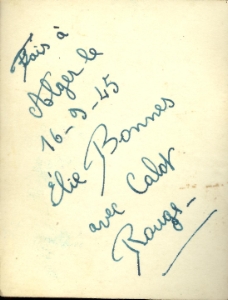 Fais à
Alger le
16-9-45
Élie Bonnes
avec Calot
Rouge-